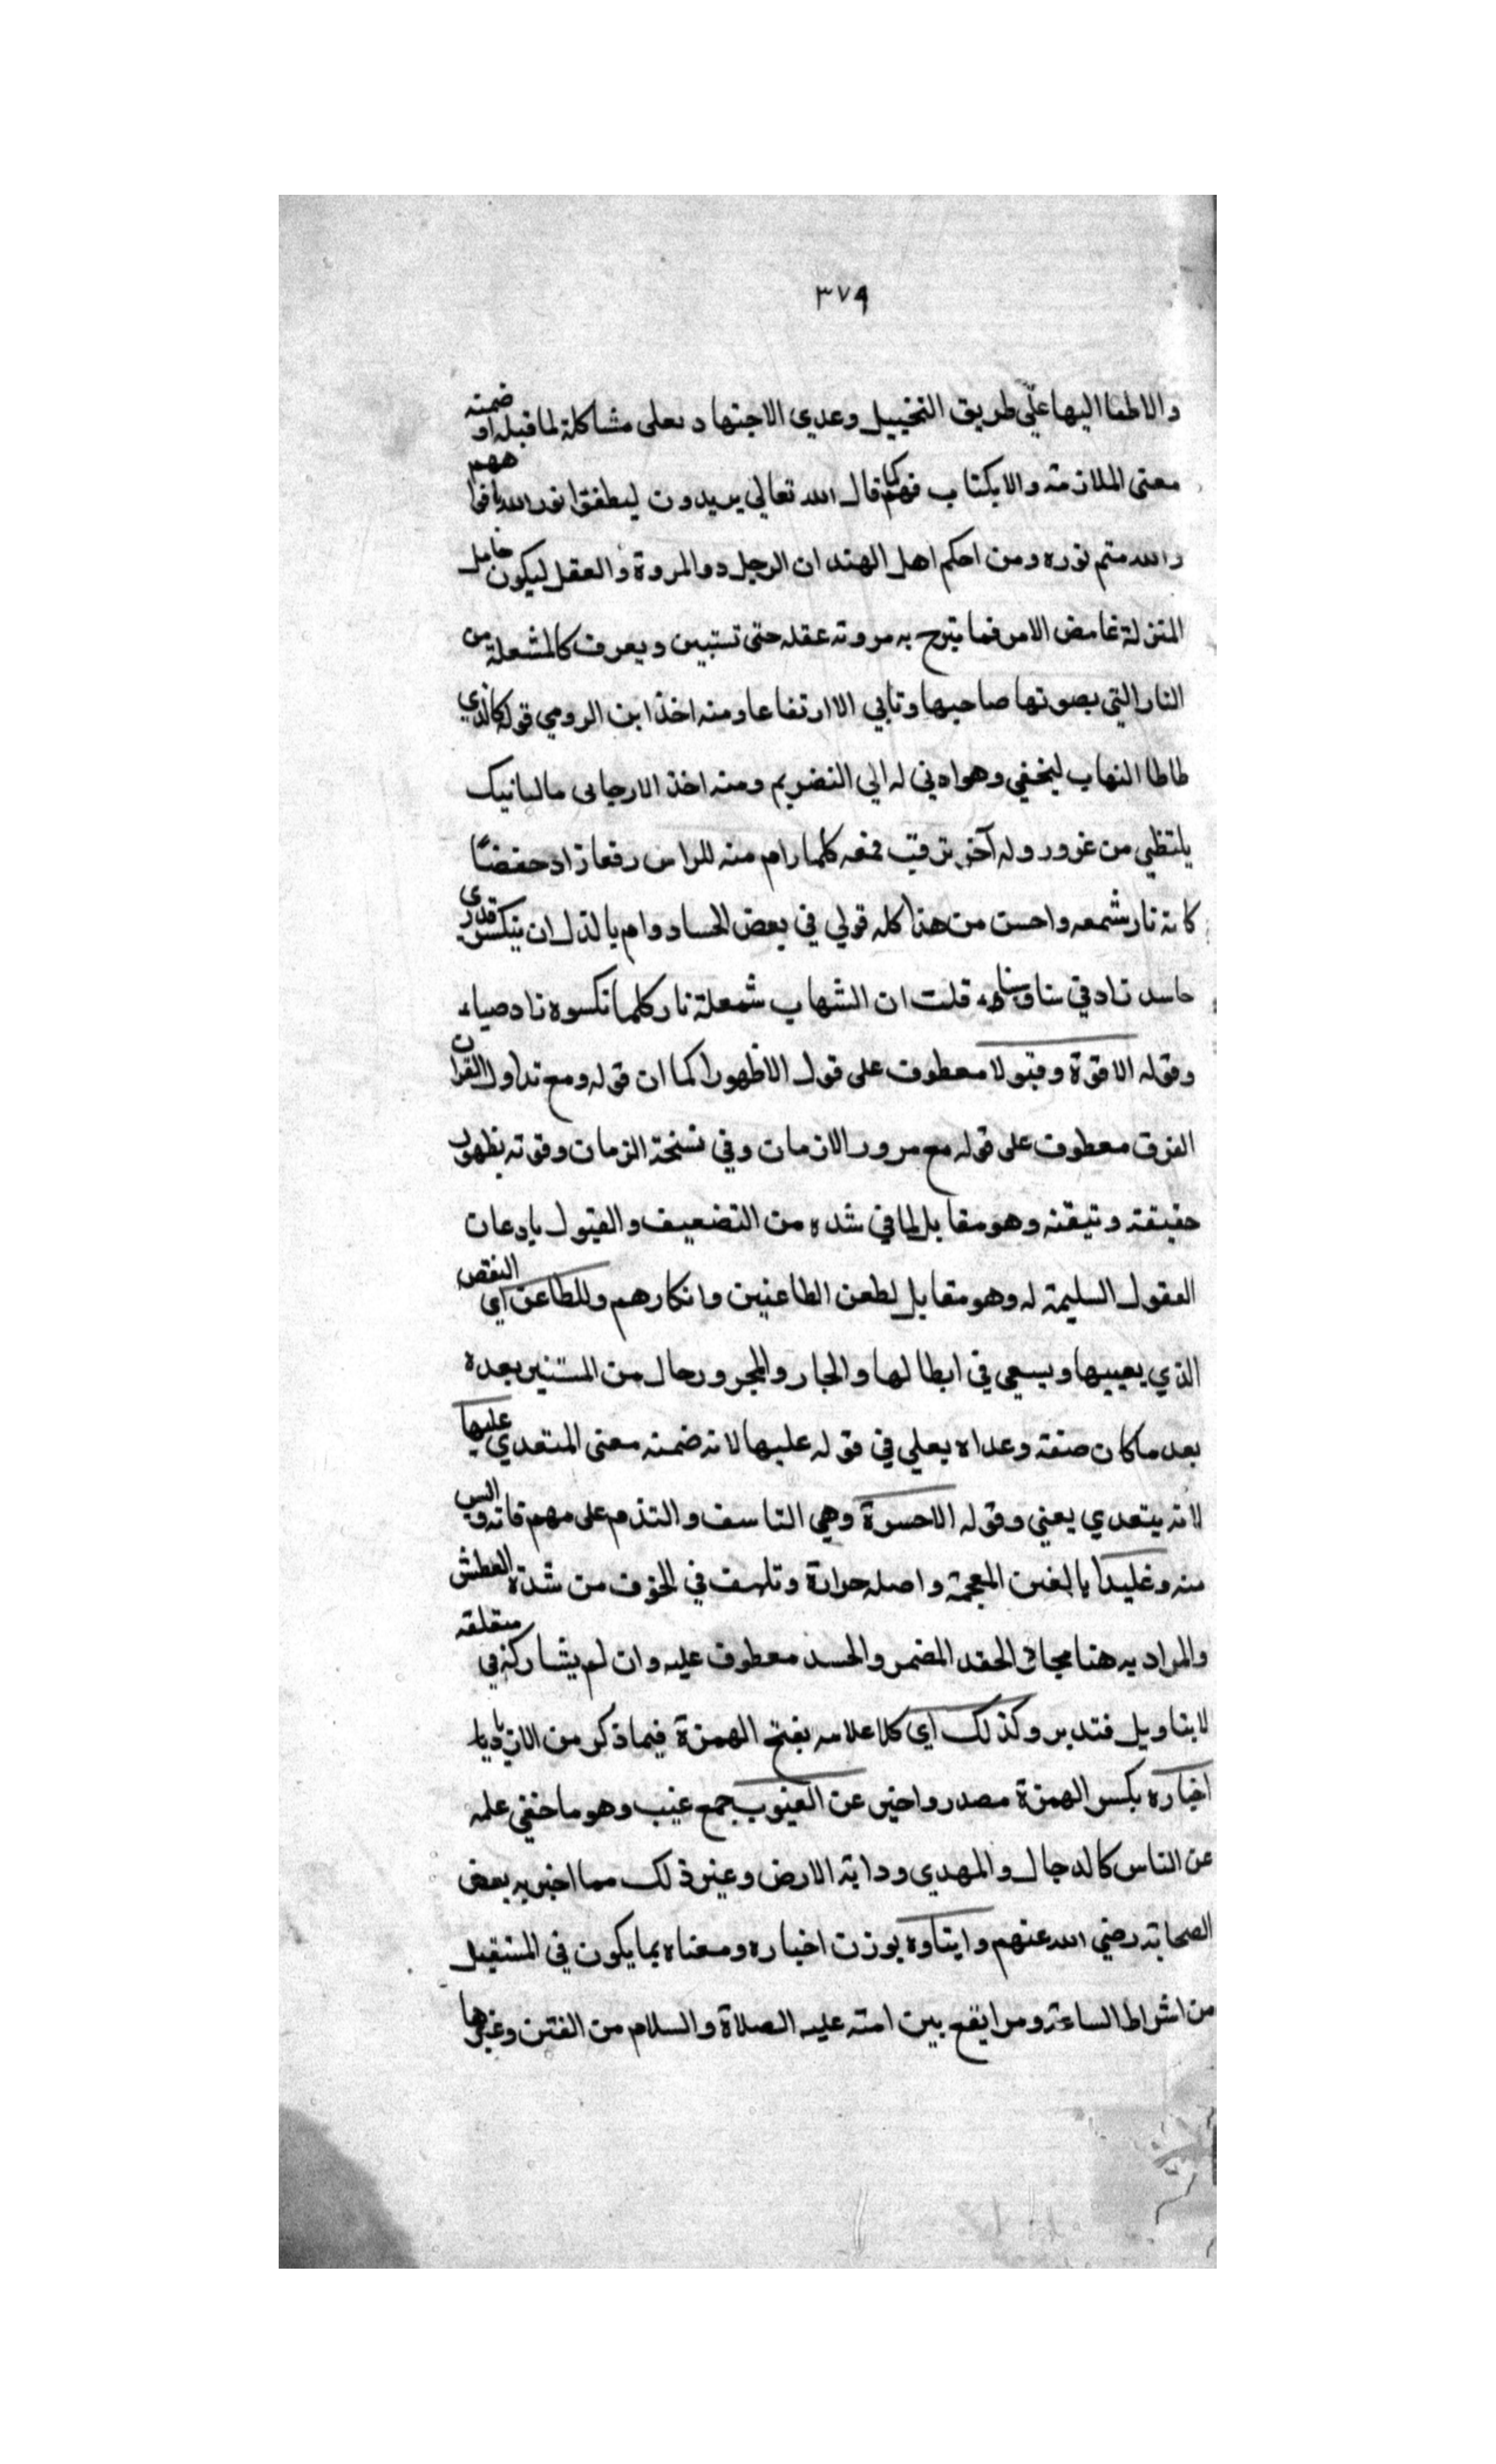 ٣٧٩
والاطفا اليها علي طريق التخييل وعدي الاجتهاد بعلى مشاكلة لما قبله او ضمنه
معنى الملازمة والايكتاب فهو كما قال الله تعالي يريدون ليطفئوا نور الله بافواههم
والله متم نوره ومن احكم اهل الهند ان الرجل ذو المروة والعقل ليكون خامل
المنزلة غامض الامر فما تبرح به مروته عقله حتى تستبين ويعرف كالمشعلة من
النار التي يصونها صاحبها وتابي الا ارتفاعا ومنه اخذ ابن الرومي قوله كالذي
طاطا الشهاب ليخفي وهو ادني له الي التضريم ومنه اخذ الارجاني
يلتظي من غرور وله آخر كلما رام منه للراس رفعا زاد خفضا
كانه نار شمعه واحسن من هذا كله قولي في بعض الحساد رام بالذل ان ينكس قدري
حاسد زاد في سنا وسناه قلت ان الشهاب شعلة نار كلما نكسوه زاد ضياء
وقوله الا قوة وقبولا معطوف على قول الا ظهورا كما ان قوله ومع تداول القرآن
الفرق معطوف على قوله مع مرور الازمان وفي نسخة الزمان وقوته بظهور
حقيقة وتيقنه وهو مقابل لما في شده من التضعيف والقبول باذعان
العقول السليمة له وهو مقابل لطعن الطاعنين وانكارهم وللطاعن اي النقص
الذي يعيبها ويسعى في ابطالها والجار والمجرور حال من المستنير بعده
بعد ما كان صفة وعداه بعلي في قوله عليها لانه ضمنه معنى المتعدي عليها
لانه يتعدي يعني وقوله الا حسرة وهي التاسف والتذم على مهم فاته وايس
منه وغليلا بالغين المعجمة واصله حرارة وتلهف في الجوف من شدة العطش
والمراد به هنا مجاز الحقد المضمر والحسد معطوف عليه وان لم يشاركه في متعلقه
لا بتاويل فتدبر وكذلك اي كلاعلامه بفتح الهمزة فيما ذكر من الازدياد
اخباره بكسر الهمزة مصدر واخبر عن الغيوب جمع غيب وهو ما خفي علمه
عن الناس كالدجال والمهدي ودابة الارض وغير ذلك مما اخبر به بعض
الصحابة رضي الله عنهم وانباوه بوزن اخباره ومعناه بما يكون في المستقبل
من اشراط الساعة ومرا يقع بين امته عليه الصلاة والسلام من الفتن وغيرها